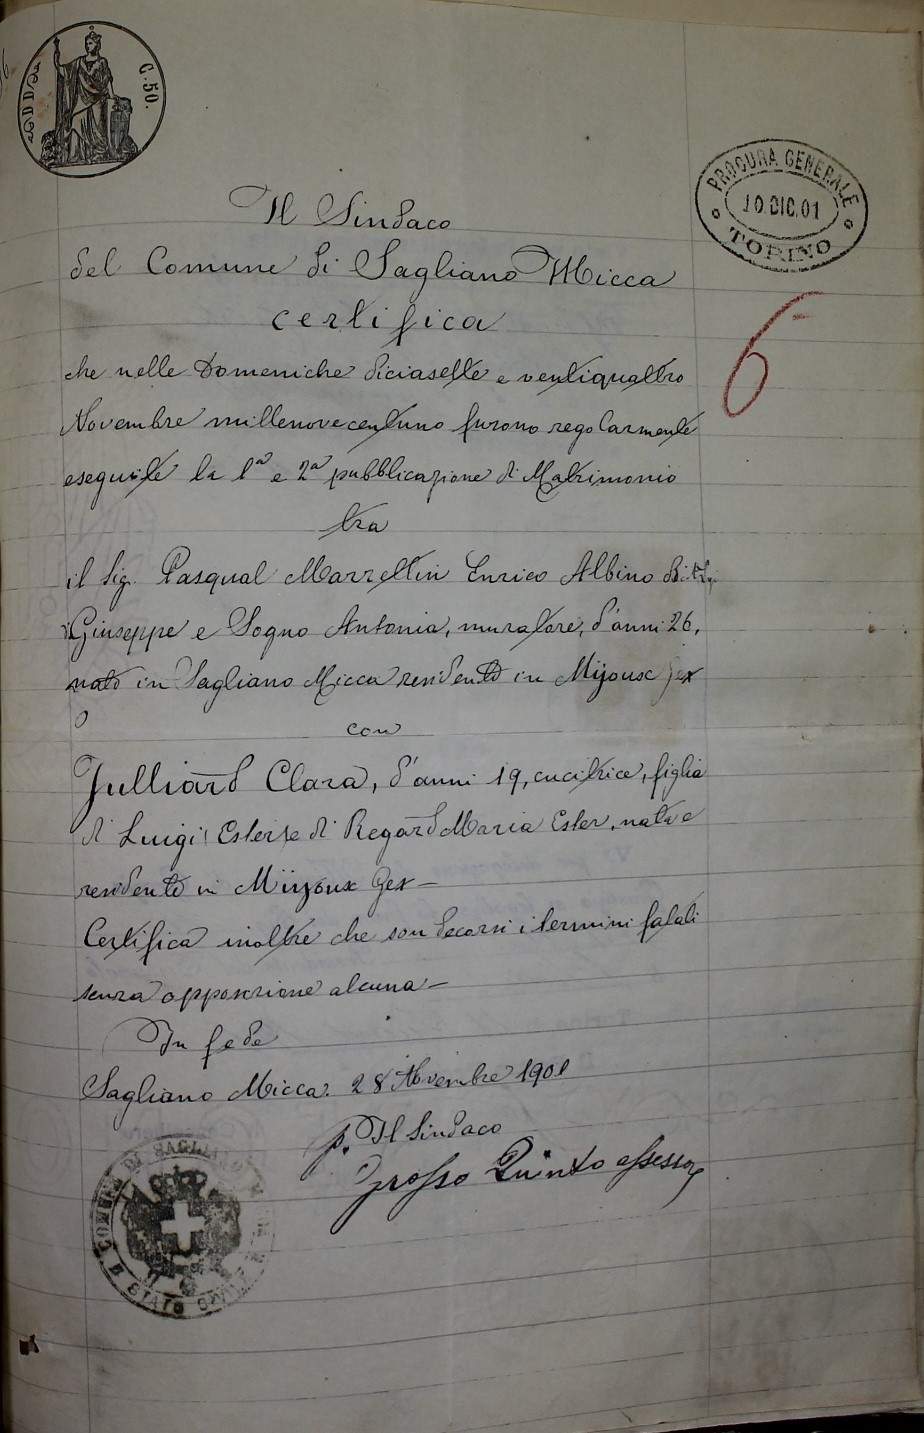 C. 50.
PROCURA GENERALE
10 DIC. 01
TORINO
6
Il Sindaco
del Comune di Sagliano Micca
certifica
che nelle Domeniche diciasette e ventiquattro
Novembre millenovecentuno furono regolarmente
eseguite la 1a e 2a pubblicazione di Matrimonio
tra
il Sig. Pasqual Marzettin Enrico Albino di
Giuseppe e Sogno Antonia, muratore, d'anni 26,
nato in Sagliano Micca residente in Mijoux Gex
con
Julliard Clara, d'anni 19, cucitrice, figlia
di Luigi Ester e di Regard Maria Ester, nata e
residente in Mijoux Gex—
Certifica inoltre che son decorsi i termini fatali
senza opposizione alcuna—
In fede
Sagliano Micca. 28 Novembre 1901
p. Il Sindaco
Grosso Quinto assessore
COMUNE DI SAGLIANO
STATO CIVILE